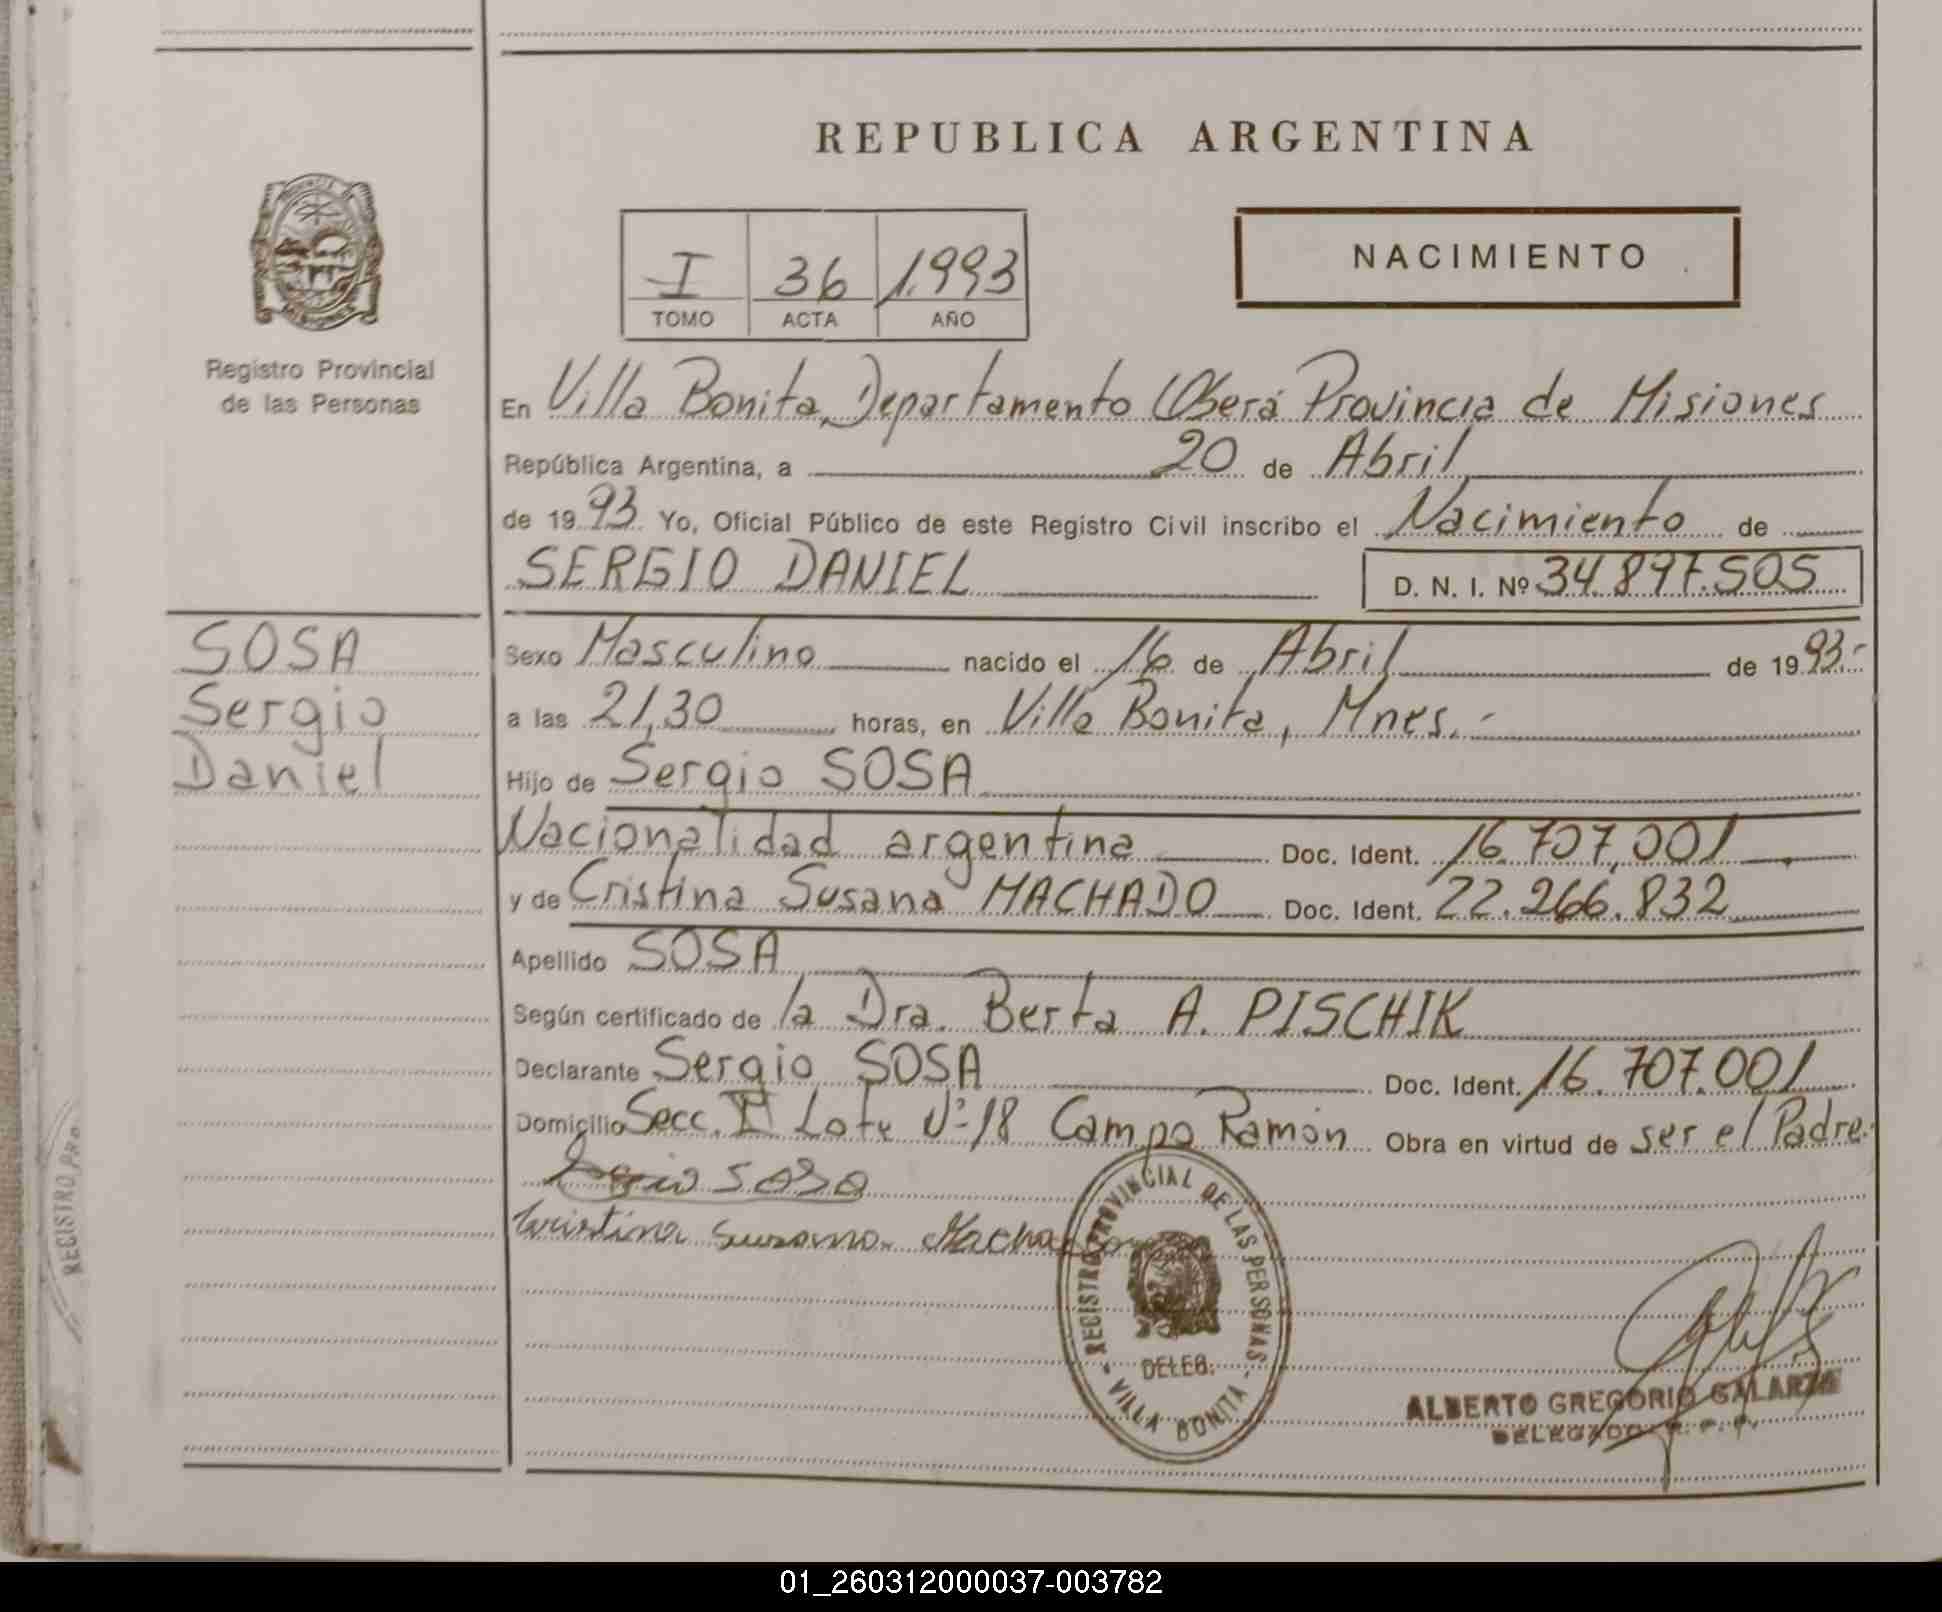 REPUBLICA ARGENTINA
I 36 1.993
TOMO ACTA AÑO
NACIMIENTO
Registro Provincial
de las Personas
En Villa Bonita, Departamento Oberá Provincia de Misiones
República Argentina, a 20 de Abril
de 1993 Yo, Oficial Público de este Registro Civil inscribo el Nacimiento de
SERGIO DANIEL D. N. I. Nº 34.897.505
SOSA
Sergio
Daniel
Sexo Masculino nacido el 16 de Abril de 1993.-
a las 21,30 horas, en Villa Bonita, Mnes.-
Hijo de Sergio SOSA
Nacionalidad argentina Doc. Ident. 16.707.001
y de Cristina Susana MACHADO Doc. Ident. 22.266.832
Apellido SOSA
Según certificado de la Dra. Berta A. PISCHIK
Declarante Sergio SOSA Doc. Ident. 16.707.001
Domicilio Secc. Lote Nº 18 Campo Ramón Obra en virtud de ser el Padre.
Sergio SOSA
Cristina Susana Machado
REGISTRO PROVINCIAL DE LAS PERSONAS
DELEG.
- VILLA BONITA -
ALBERTO GREGORIO GALARZA
DELEGADO R. P. P.
REGISTRO PRO
01_260312000037-003782